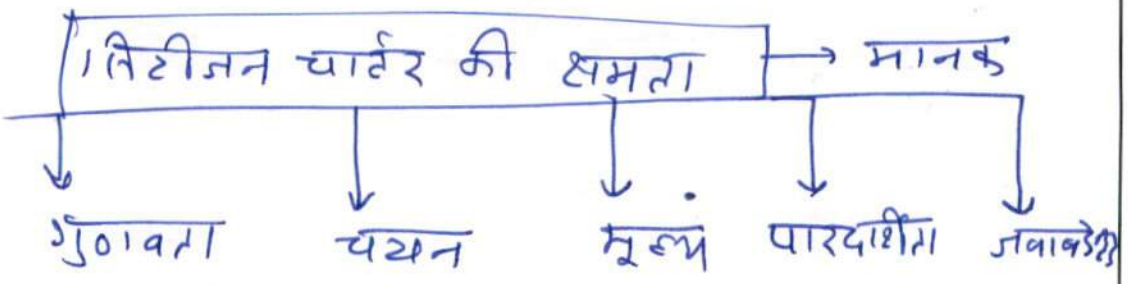 सिटीजन चार्टर की क्षमता → मानक
गुणवता चयन मूल्य पारदर्शीता